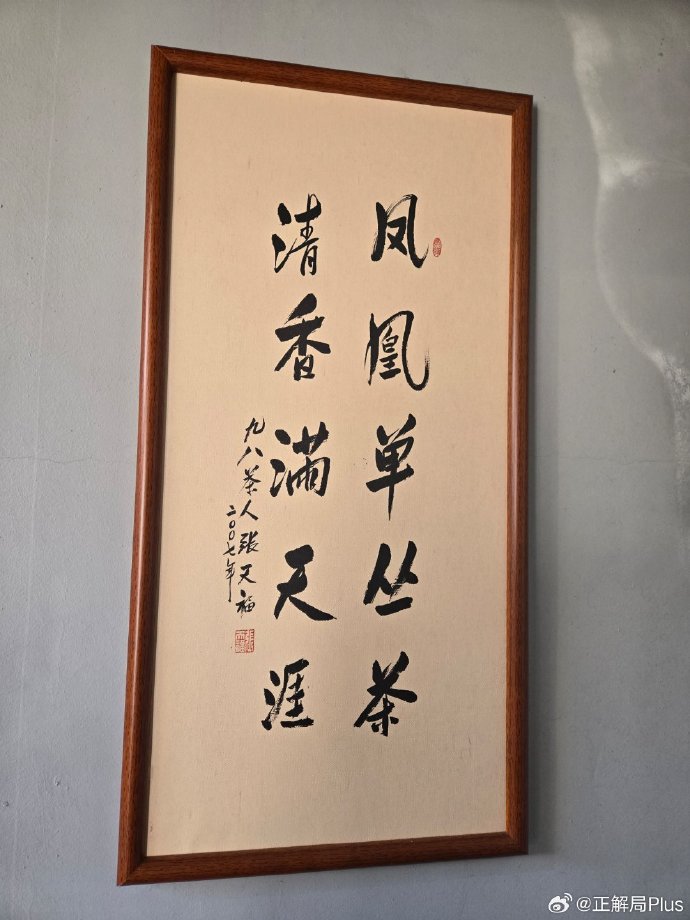 凤凰单丛茶
清香满天涯
九八茶人张天福
二〇〇七年
@正解局Plus